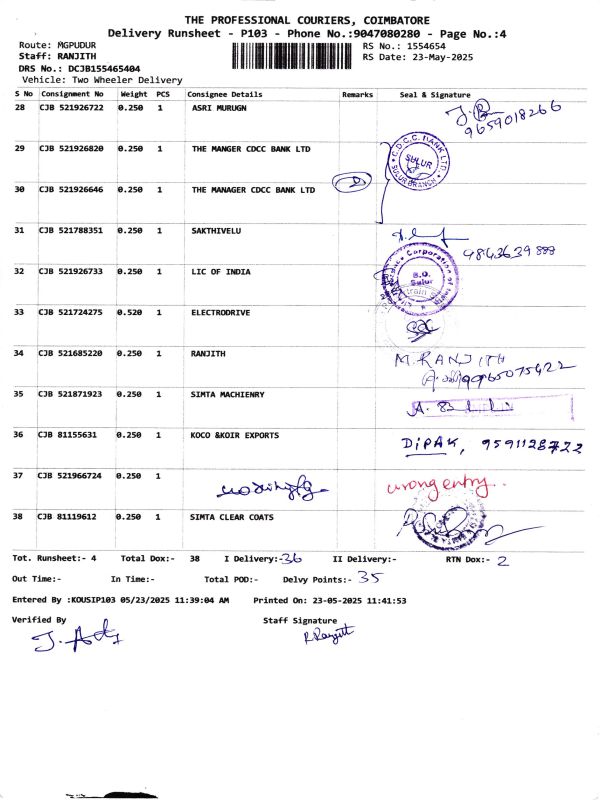 THE PROFESSIONAL COURIERS, COIMBATORE
Delivery Runsheet - P103 - Phone No.:9047080280 - Page No.:4
Route: MGPUDUR
RS No.: 1554654
Staff: RANJITH
RS Date: 23-May-2025
DRS No.: DCJB155465404
Vehicle: Two Wheeler Delivery
S No Consignment No Weight PCS Consignee Details Remarks Seal & Signature
28 CJB 521926722 0.250 1 ASRI MURUGN
9659018266
29 CJB 521926820 0.250 1 THE MANGER CDCC BANK LTD
C.D.C.C. BANK LTD. SULUR SULUR BRANCH
30 CJB 521926646 0.250 1 THE MANAGER CDCC BANK LTD
31 CJB 521788351 0.250 1 SAKTHIVELU
32 CJB 521926733 0.250 1 LIC OF INDIA
Corporation of India S.O. Sulur
33 CJB 521724275 0.520 1 ELECTRODRIVE
34 CJB 521685220 0.250 1 RANJITH M.RANJITH
35 CJB 521871923 0.250 1 SIMTA MACHIENRY
36 CJB 81155631 0.250 1 KOCO &KOIR EXPORTS DiPAK, 9591128722
37 CJB 521966724 0.250 1 wrong entry
38 CJB 81119612 0.250 1 SIMTA CLEAR COATS
Tot. Runsheet:- 4 Total Dox:- 38 I Delivery:-36 II Delivery:- RTN Dox:- 2
Out Time:- In Time:- Total POD:- Delvy Points:- 35
Entered By :KOUSIP103 05/23/2025 11:39:04 AM Printed On: 23-05-2025 11:41:53
Verified By Staff Signature